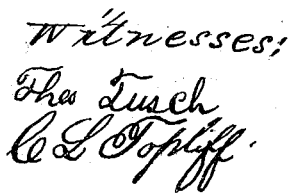 Witnesses:
Theo Tusch
C L Topliff